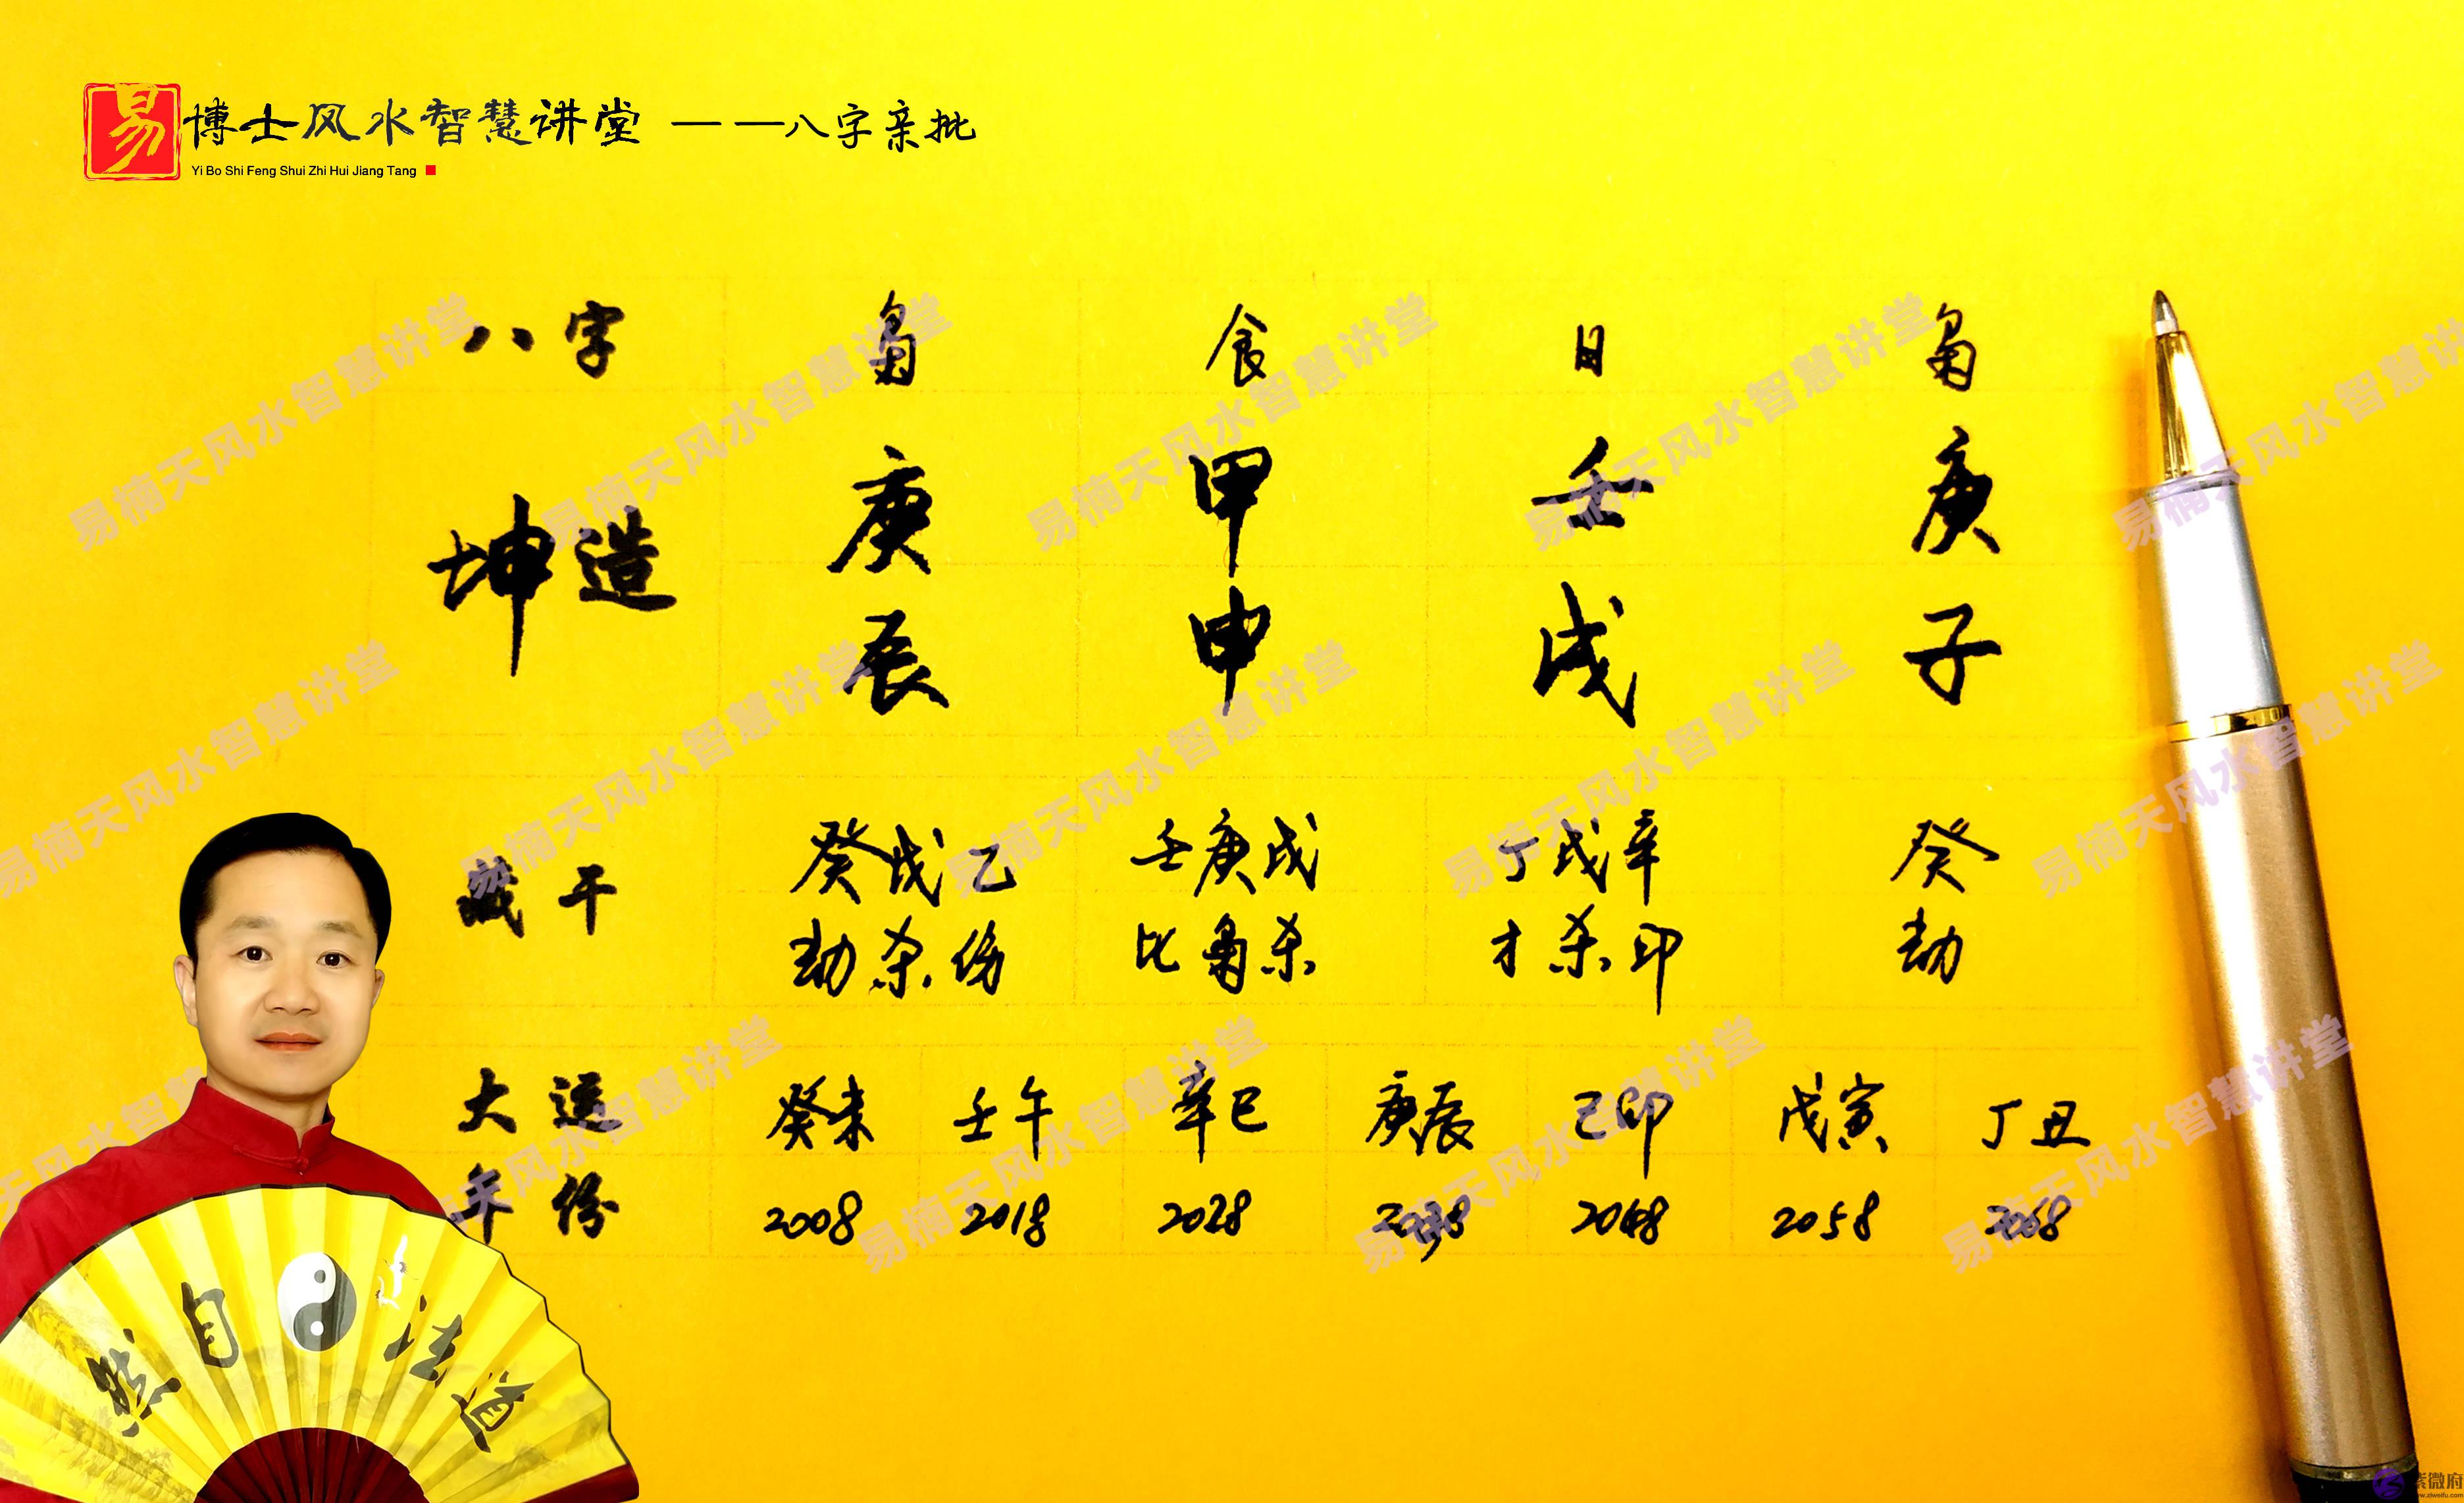 易博士风水智慧讲堂 ——八字亲批
Yi Bo Shi Feng Shui Zhi Hui Jiang Tang
八字 枭 食 日 枭
坤造 庚 甲 壬 庚
辰 申 戌 子
藏干 癸戊乙 壬庚戊 丁戊辛 癸
劫杀伤 比枭杀 才杀印 劫
大运 癸未 壬午 辛巳 庚辰 己卯 戊寅 丁丑
年份 2008 2018 2028 2038 2048 2058 2068
道法自然
易楠天风水智慧讲堂
紫微府
www.ziweifu.com